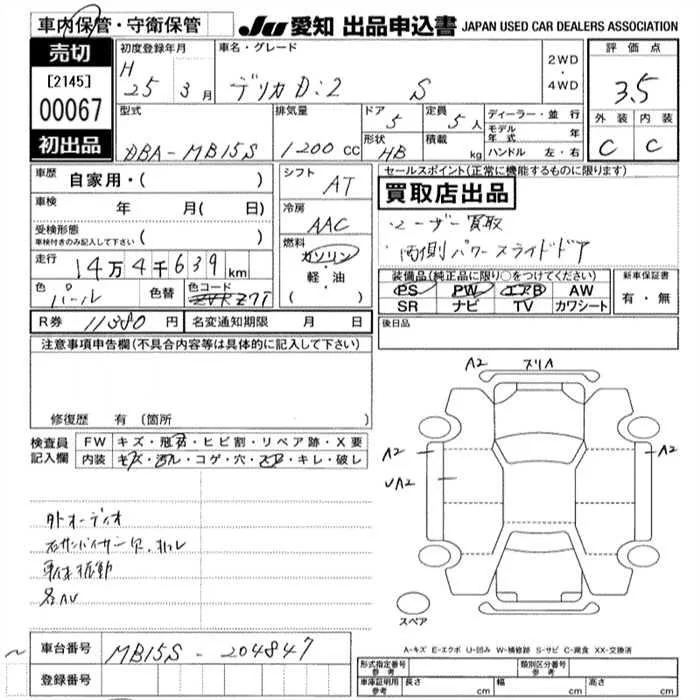 車内保管・守衛保管
JU 愛知 出品申込書 JAPAN USED CAR DEALERS ASSOCIATION
売切
[2145]
00067
初出品
初度登録年月
H 25 3月
車名・グレード
デリカD:2 S
2WD・4WD
評価点
3.5
外装 内装
C C
型式
DBA-MB15S
排気量
1200cc
ドア
5
形状
HB
定員
5人
積載
kg
ディーラー・並行
モデル年式 年
ハンドル 左・右
車歴
自家用・( )
車検
年 月( 日)
受検形態
車検付きのみ記入して下さい ( )
走行
14万4千639km
色
パール
色替
色コード
Z7T
シフト
AT
冷房
AAC
燃料
ガソリン・軽・油
( )
セールスポイント(正常に機能するものに限ります)
買取店出品
・ユーザー買取
・両側パワースライドドア
装備品(純正品に限り○をつけてください)
PS PW エアB AW
SR ナビ TV カワシート
新車保証書
有・無
R券 11380円
名変通知期限 月 日
後日品
注意事項申告欄(不具合内容等は具体的に記入して下さい)
修復歴 有 (箇所
検査員記入欄
FW キズ・飛石・ヒビ割・リペア跡・X要
内装 キズ・汚レ・コゲ・穴・キレ・破レ
外オーディオ
車体振動
各AU
A2
A2
UA2
A2
スペア
A-キズ E-エクボ U-凹み W-補修跡 S-サビ C-腐食 XX-交換済
車台番号
MB15S-204847
登録番号
形式指定番号 参考
類別区分番号 参考
車庫証明用 参考
長さ cm
幅 cm
高さ cm